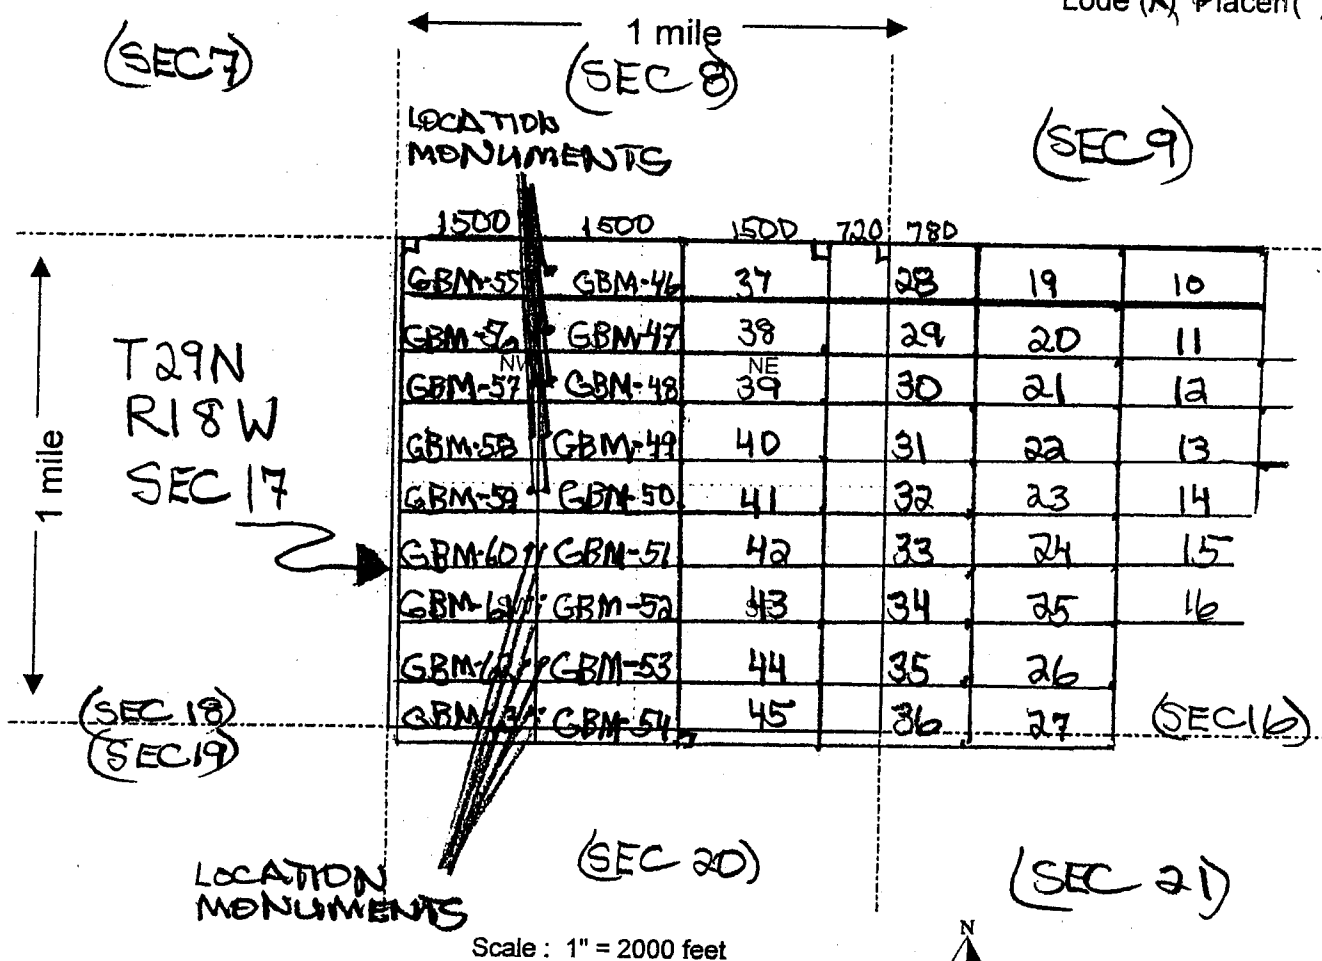 Lode (X) Placer( )
1 mile
(SEC 7)
(SEC 8)
LOCATION
MONUMENTS
(SEC 9)
1500 1500 1500 720 780
GBM-55 GBM-46 37 28 19 10
GBM-56 GBM-47 38 29 20 11
NE
GBM-57 GBM-48 39 30 21 12
GBM-58 GBM-49 40 31 22 13
GBM-59 GBM-50 41 32 23 14
GBM-60 GBM-51 42 33 24 15
GBM-61 GBM-52 43 34 25 16
GBM-62 GBM-53 44 35 26
GBM- GBM-54 45 36 27
T29N
R18W
SEC 17
1 mile
(SEC 18)
(SEC 19)
(SEC 16)
(SEC 20)
(SEC 21)
LOCATION
MONUMENTS
Scale : 1" = 2000 feet
N